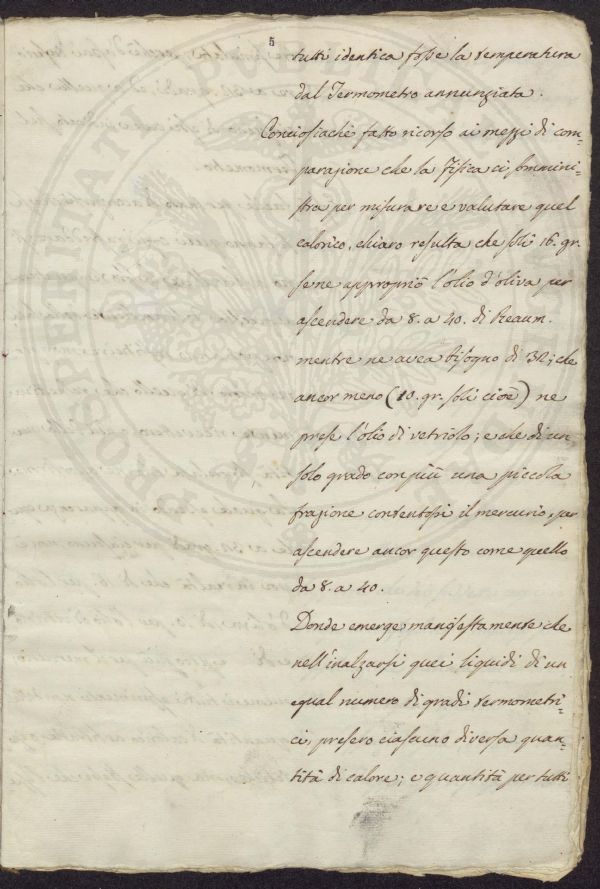 5
tutti identica fosse la temperatura
dal Termometro annunziata.
Conciosiachè fatto ricorso ai mezzi di com=
parazione che la Fisica ci sommini=
stra per misurare e valutare quel
calorico, chiaro resulta che soli 16. gr.
se ne appropriò l'olio d'oliva per
ascendere da 8. a 40. di Reaum.
mentre ne avea bisogno di 32; che
ancor meno (10. gr. soli cioè) ne
prese l'olio di vetriolo; e che di un
solo grado con più una piccola
frazione contentossi il mercurio, per
ascendere ancor questo come quello
da 8. a 40.
Donde emerge manifestamente che
nell'inalzarsi quei liquidi di un
egual numero di gradi termometri=
ci, presero ciascuno diversa quan=
tità di calore; e quantità per tutti